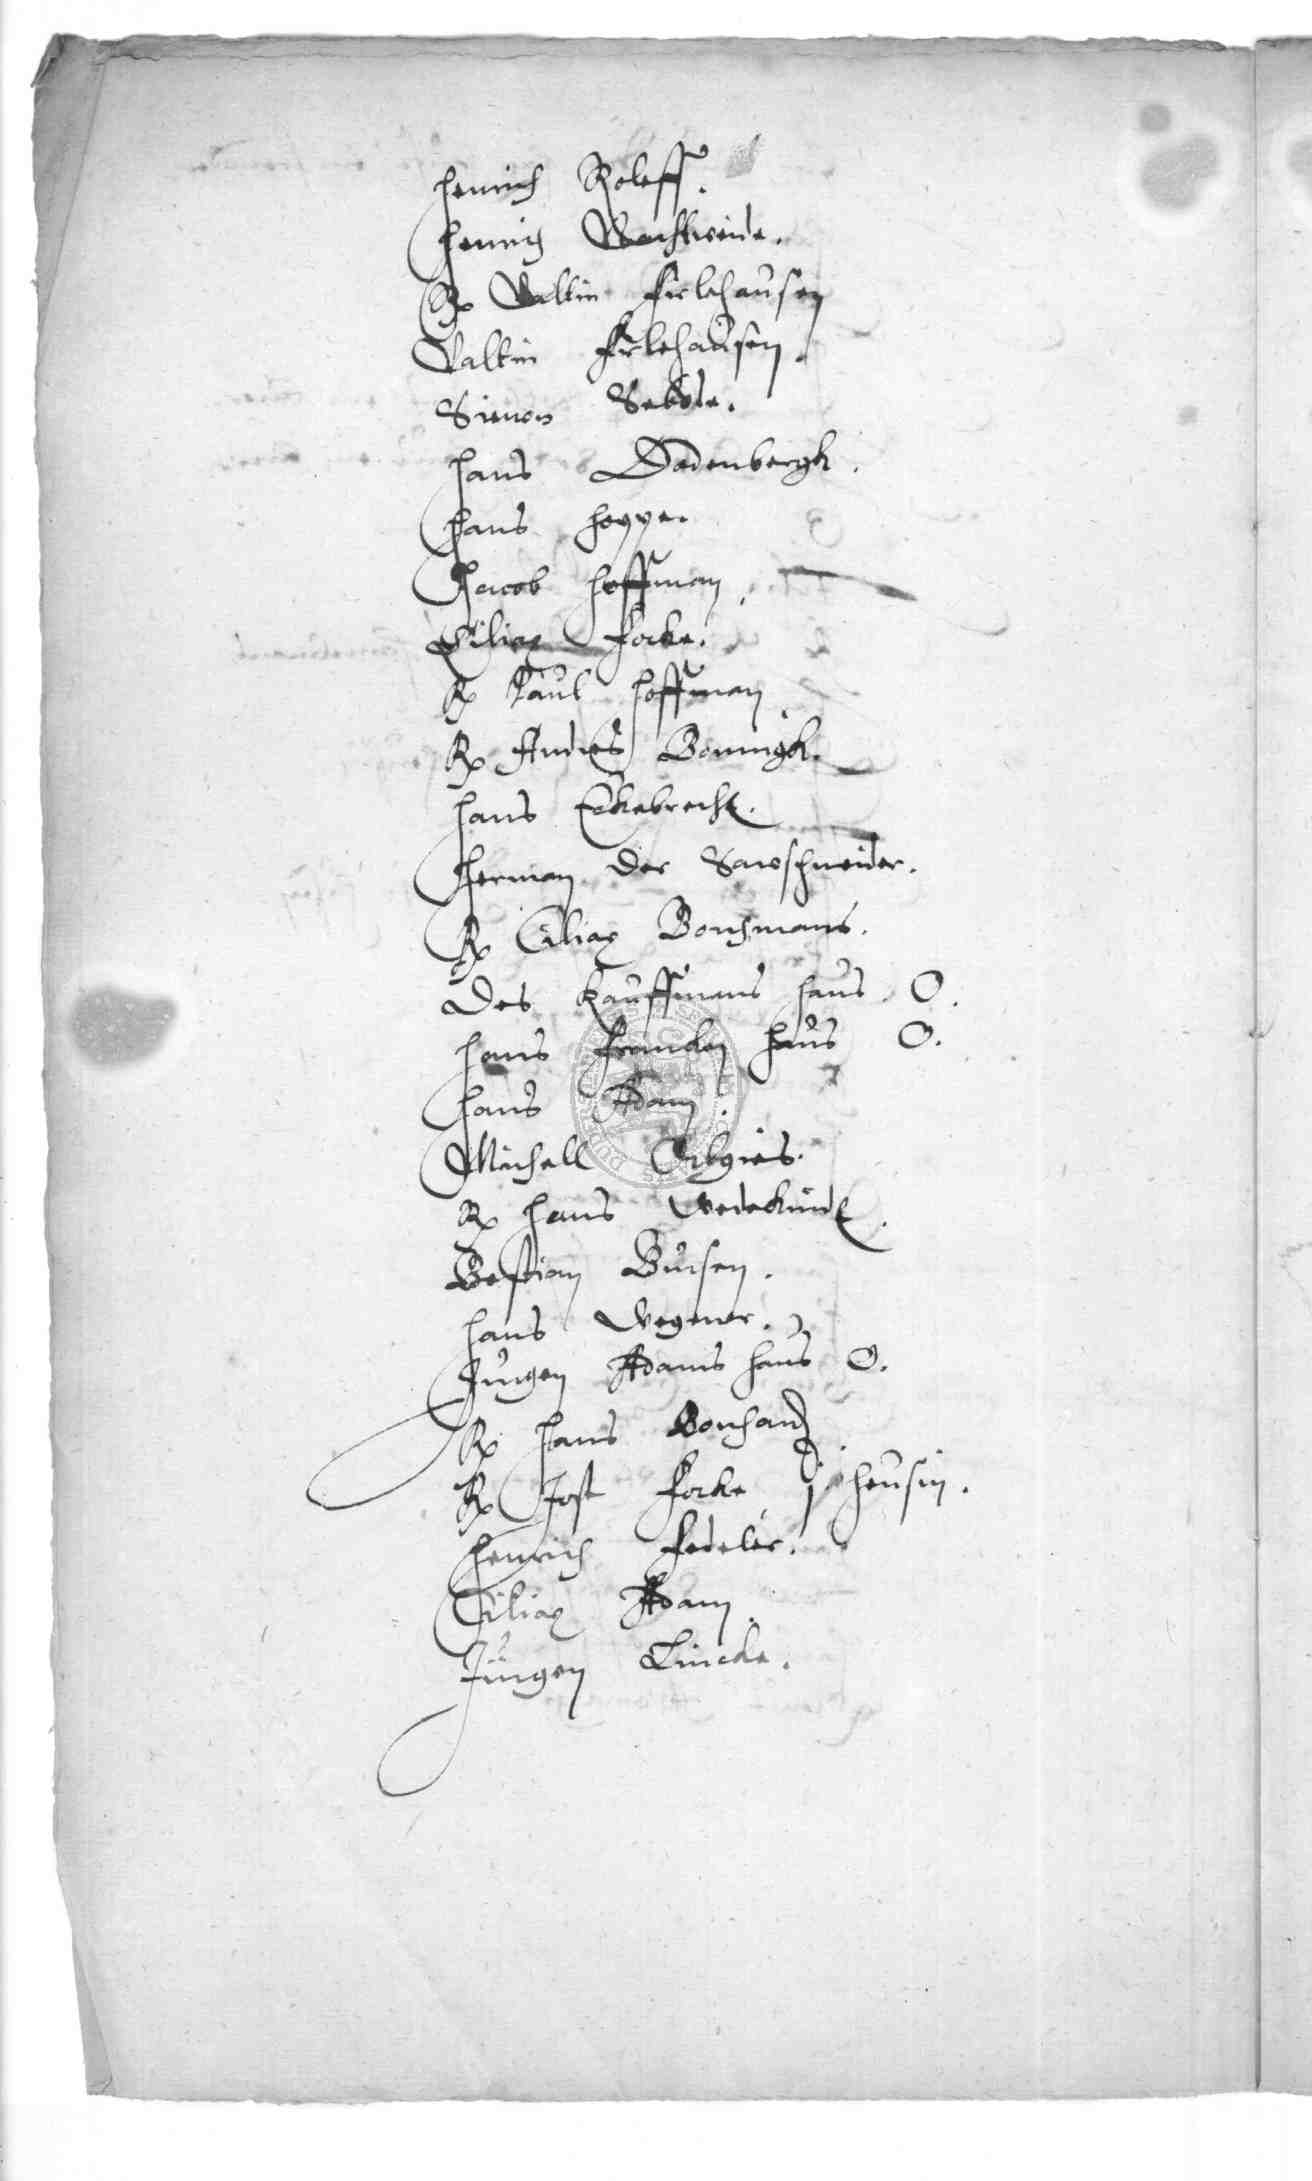 Henrich Roleff.
Henrich Wachsweide.
Rx Valtin Firlehausen
Valtin Firlehausen.
Simon Sebode.
Hans Dodenbergk.
Hans Hoppe.
Jacob Hoffman.
Ciliax Forke.
Rx Paul Hoffman
Rx Andres Bonnigk.
Hans Eckebrecht.
Herman der Sawschneider.
Rx Ciliax Bonsmans.
Des Kauffmans haus. O.
Hans Francken haus O.
Hans Adam.
Michell
Rx Hans Wedekindt.
Bastian Bursen.
Hans Wegener.
Jurgen Adams haus O.
Rx Hans Bonhardt
Rx Jost Forke j heuslin.
Henrich Fedeler.
Ciliax Adam.
Jurgen Lincke.